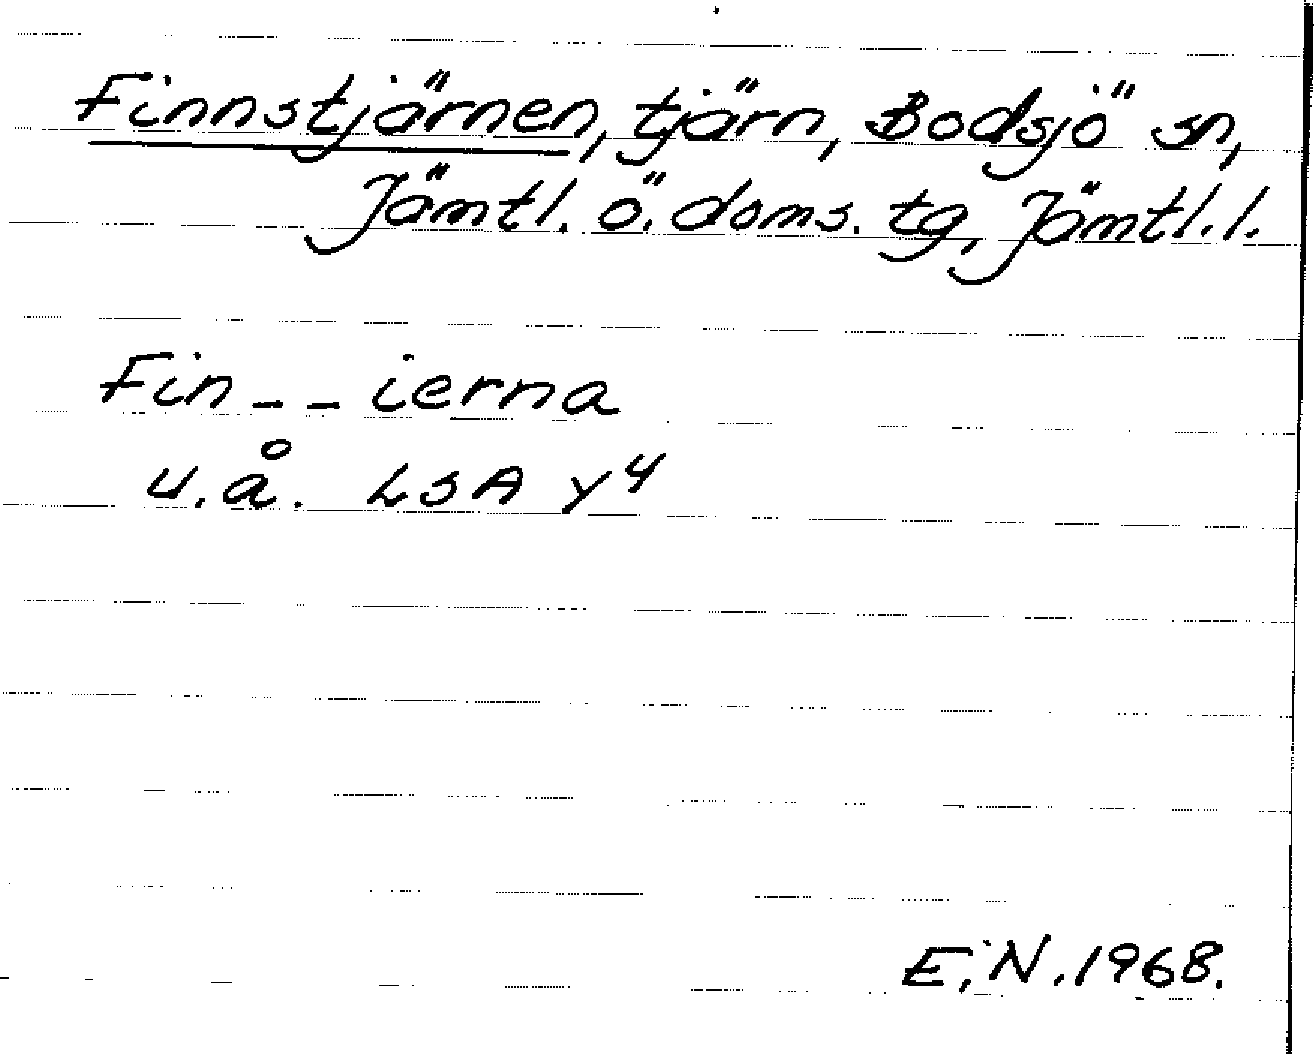 Finnstjärnen, tjärn, Bodsjö sn,
Jämtl. ö. doms. tg, Jämtl. l.
Fin _ _ ierna
u.å. LSA y4
E.N. 1968.